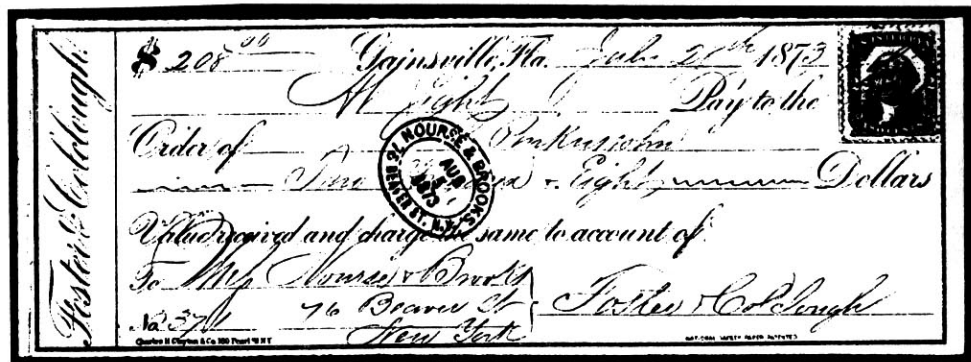 Foster & Colclough.
$ 208 00 Gainsville, Fla. July 21th 1873
At Sight Pay to the
Order of Pinkussohn
Two Hundred & Eight Dollars
Value received and charge the same to account of
To Mess Nourse & Brooks
76 Beaver St Foster & Colclough
New York
No. 371
NOURSE & BROOKS. 76 BEAVER ST. N.Y.
AUG 1873
Charles H Clayton & Co. 160 Pearl St N.Y
NATIONAL SAFETY PAPER PATENTED